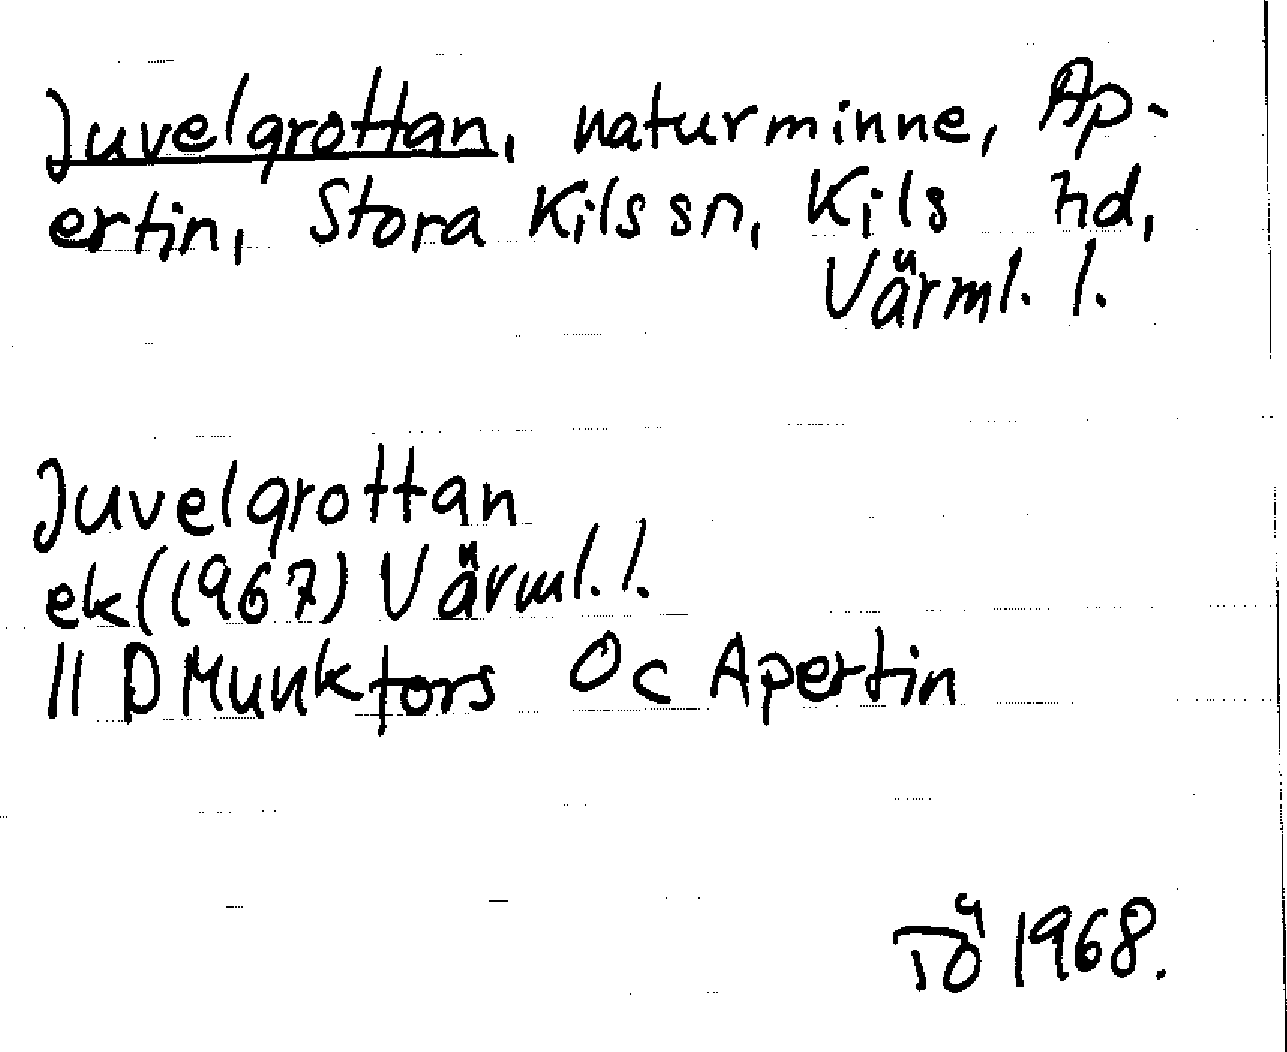 Juvelgrottan, naturminne, Ap-
ertin, Stora Kils sn, Kils hd,
Värml. l.
Juvelgrottan
ek (1967) Värml. l.
11 D Munkfors Oc Apertin
TÖ 1968.